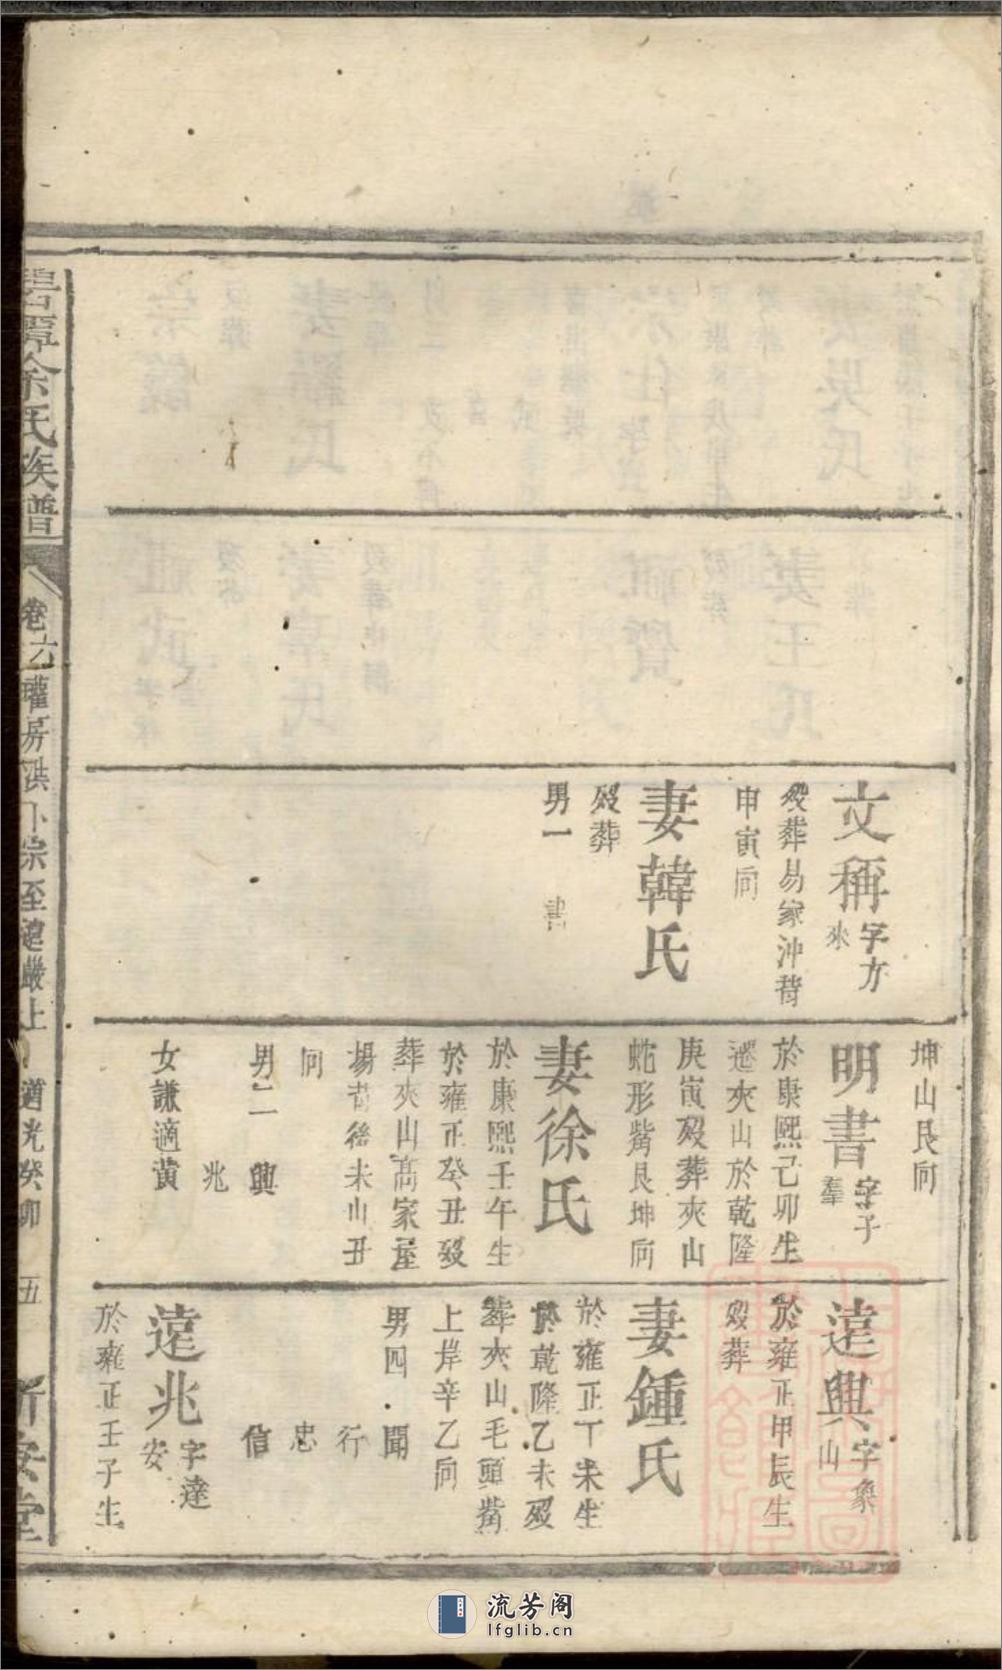 文稱字方來
歿葬易家沖背
申寅向
妻韓氏
歿葬
男一 書
坤山艮向
明書字子羣
於康熙己卯生
遷夾山於乾隆
庚寅歿葬夾山
蛇形觜艮坤向
妻徐氏
於康熙壬午生
於雍正癸丑歿
葬夾山高家屋
場背後未山丑
向
男二 興
兆
女謙適黃
遠興字象山
於雍正甲辰生
歿葬
妻鍾氏
於雍正丁未生
於乾隆乙未歿
葬夾山毛頭觜
上岸辛乙向
男四 聞
行
忠
信
遠兆字達安
於雍正壬子生
余氏族譜
卷六瓘房洪卜宗至遠嚴上 道光癸卯 五
流芳阁
lfglib.cn